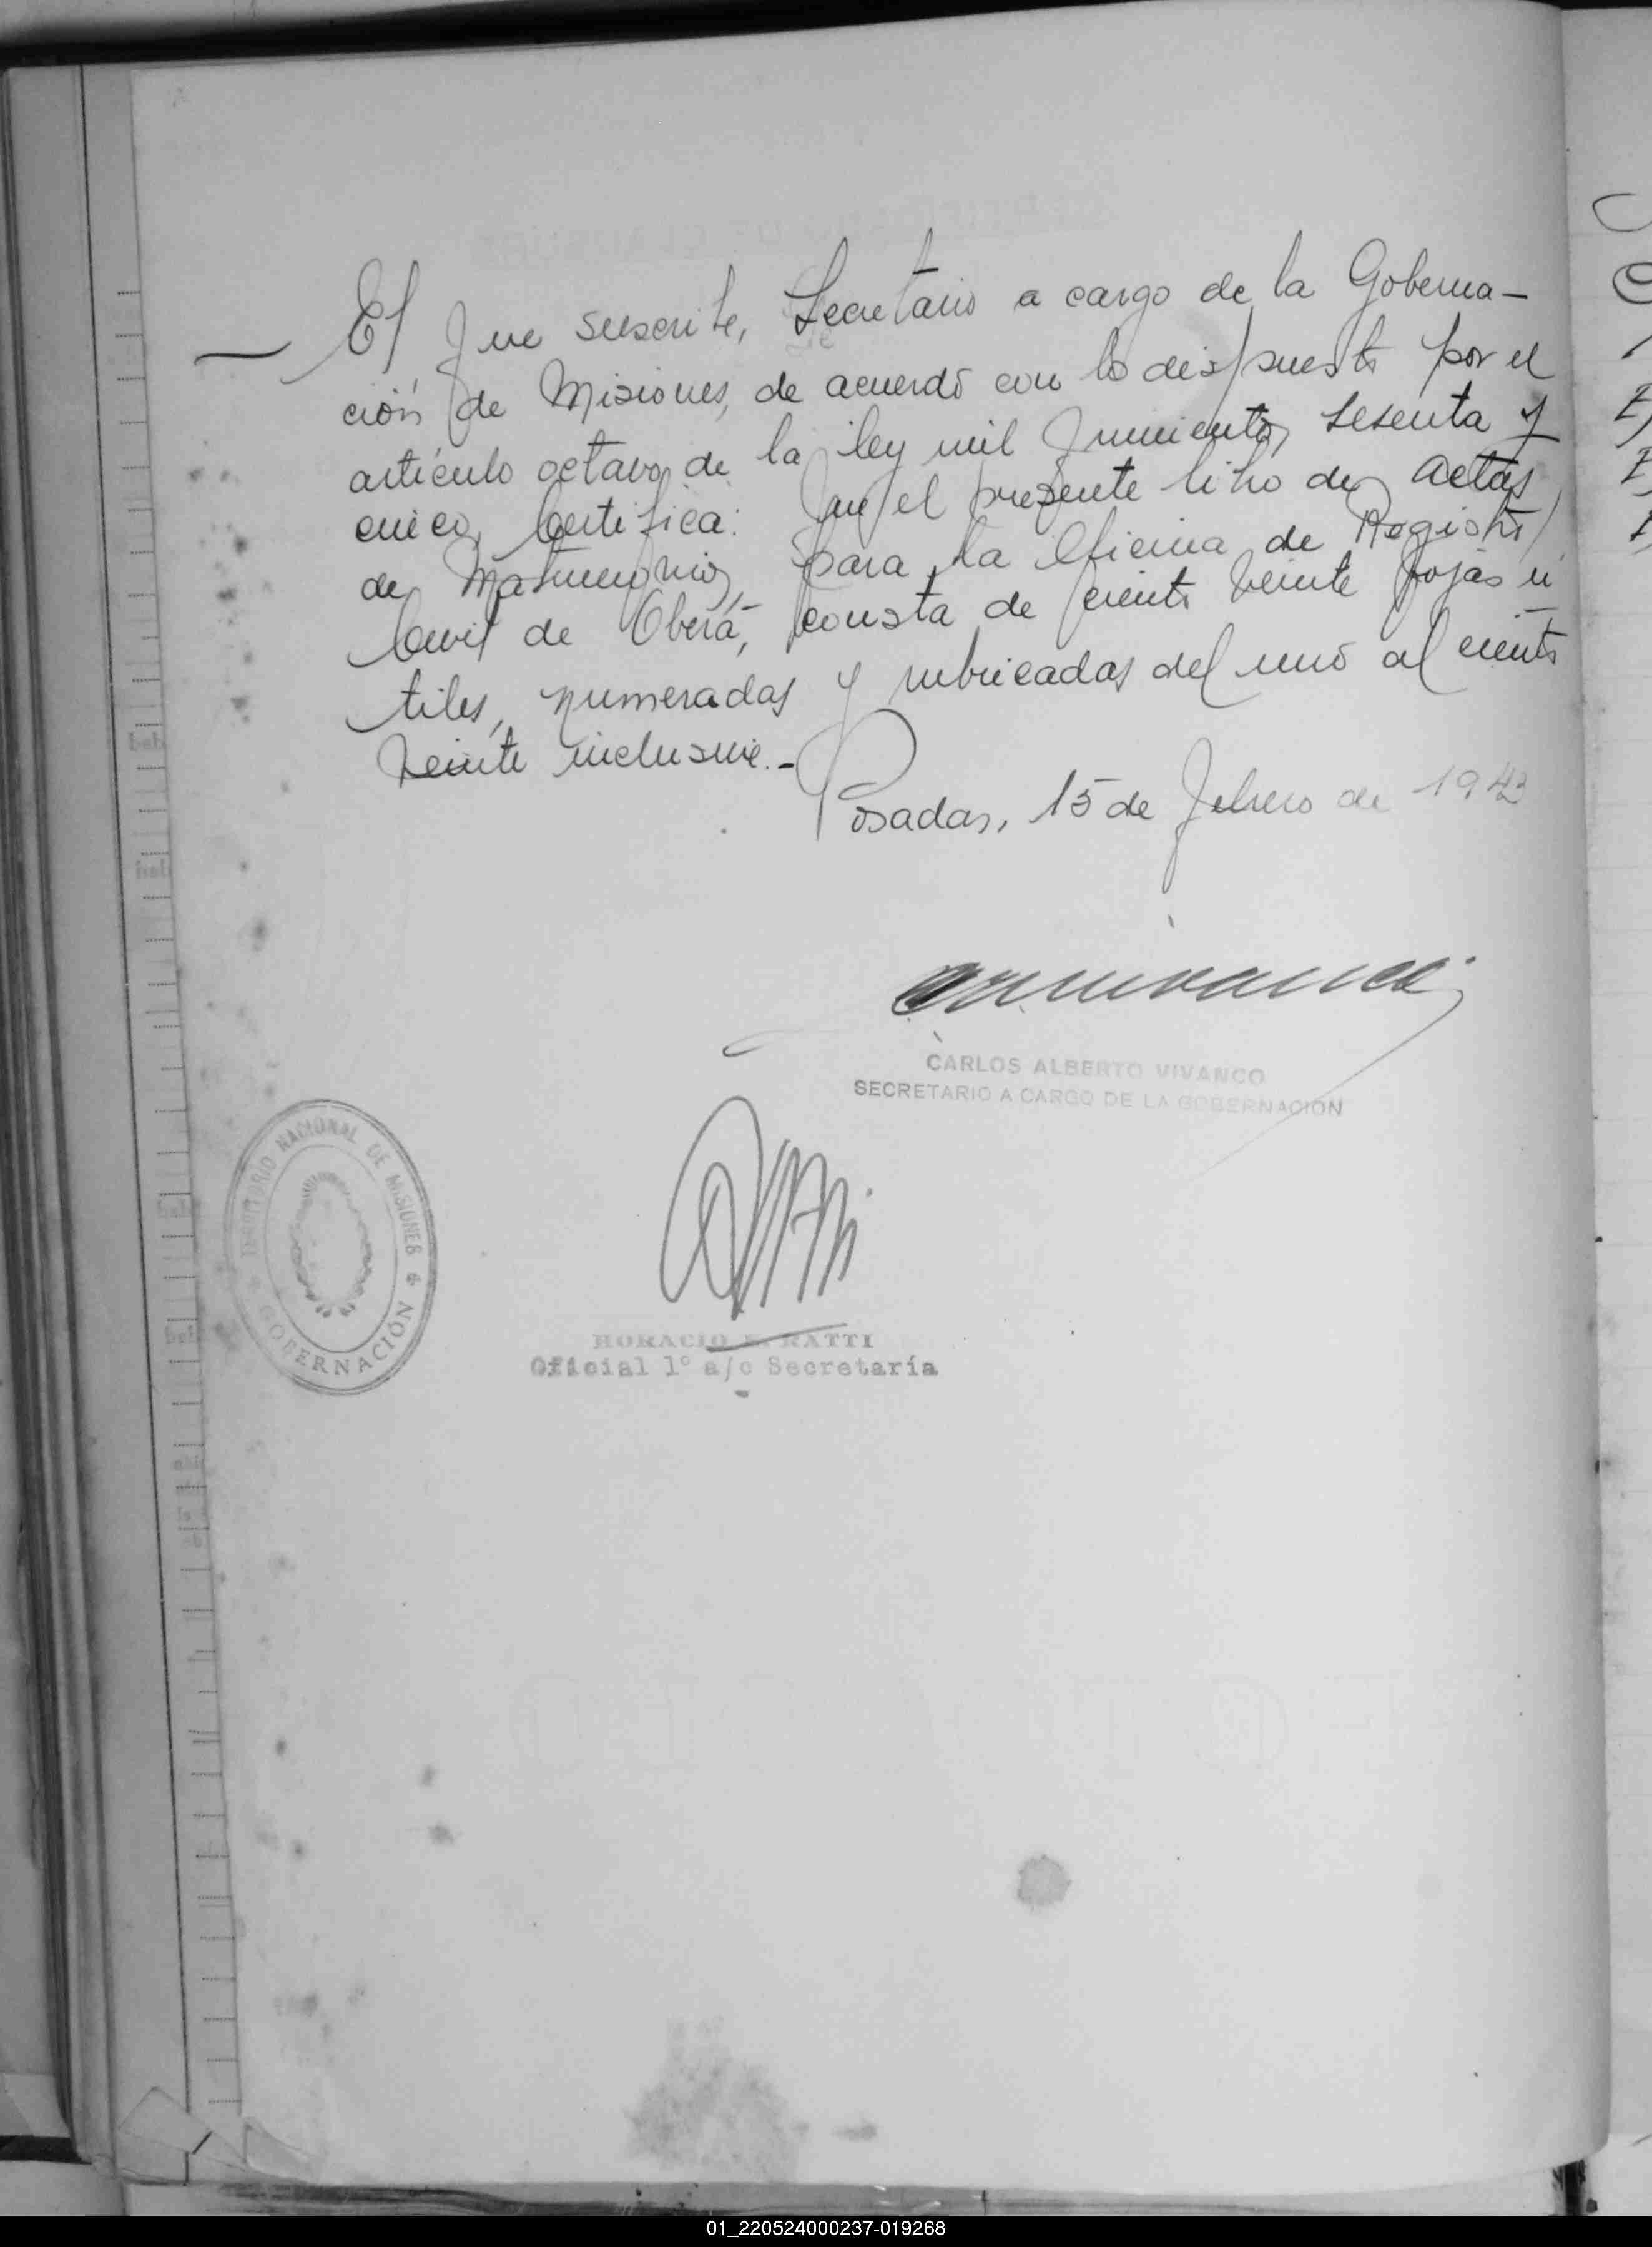 El que suscribe, Secretario a cargo de la Goberna-
ción de Misiones, de acuerdo con lo dispuesto por el
artículo octavo de la ley mil quinientos sesenta y
cinco, Certifica: Que el presente libro de actas
de Matrimonios, para la Oficina de Registro
Civil de Oberá, consta de ciento veinte fojas ú
tiles, numeradas y rubricadas del uno al ciento
veinte inclusive.-
Posadas, 15 de febrero de 1943
CARLOS ALBERTO VIVANCO
SECRETARIO A CARGO DE LA GOBERNACIÓN
TERRITORIO NACIONAL DE MISIONES
GOBERNACIÓN
HORACIO E. RATTI
Oficial 1º a/c Secretaría
01_220524000237-019268